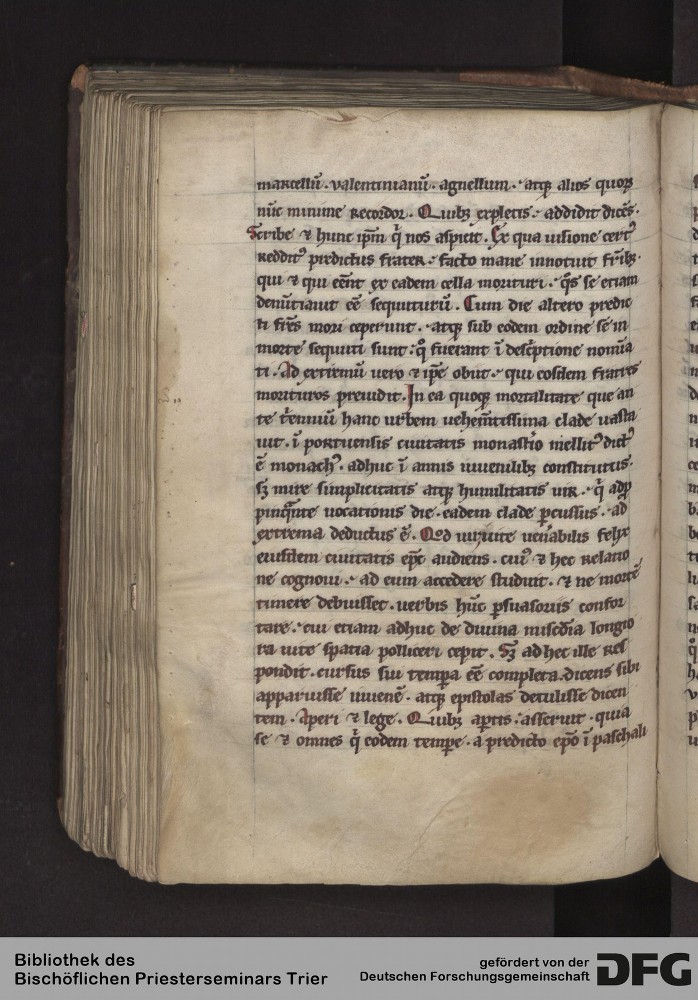 marcellū . valentinianū . agnellum . atq; alios quorꝫ
nūc minime recordor . Quibꝫ expletis . addidit dicēs .
Scribe ⁊ hunc ip̄m q̇ nos aspicit . Ex qua uisione certꝰ
redditꝰ predictus frater . facto mane innotuit fr̄ibꝫ .
qui ⁊ qui eēnt ex eadem cella morituri . q̄s se etiam
denūtiauit eē sequiturū . Cum die altero predic
ti fr̄es mori ceperunt . atq; sub eodem ordine se in
morte sequuti sunt . qͦ fuerant ī desc̄ptione nomīa
ti . Ad extremū uero ⁊ ip̄e obiit . qui eosdem fratres
morituros preuidit . In ea quoq; mortalitate que an
te t̄ennium hanc urbem uehem̄tissima clade uasta
uit . ī portuensis ciuitatis monast̄io mellitꝰ dictꝰ
ē monachꝰ . adhuc ī annis iuuenilibꝫ constitutus .
sꝫ mire simplicitatis atq; humilitatis uir . q̇ adꝓ
pinq̄nte uocationis die . eadem clade ꝑcussus . ad
extrema deductus ē . Qͦd uir uite uen̄abilis felix
eiusdem ciuitatis ep̄c audiens . cuiꝰ ⁊ hec relatio
ne cognoui . ad eum accedere studuit . ⁊ ne mortē
timere debuisset . uerbis hūc ꝑsuasoriis confor
tare . cui etiam adhuc de diuina mis̄cdia longio
ra uite spatia polliceri cepit . Sꝫ ad hec ille res
pondit . cursus sui tempa eē completa . dicens sibi
apparuisse iuuenē . atq; epistolas detulisse dicen
tem . Aperi ⁊ lege . Quibꝫ aꝑtis . asseruit . quia
se ⁊ omnes q̇ eodem tempe . a predicto ep̄o ī paschali
Bibliothek des
Bischöflichen Priesterseminars Trier
gefördert von der
Deutschen Forschungsgemeinschaft
DFG